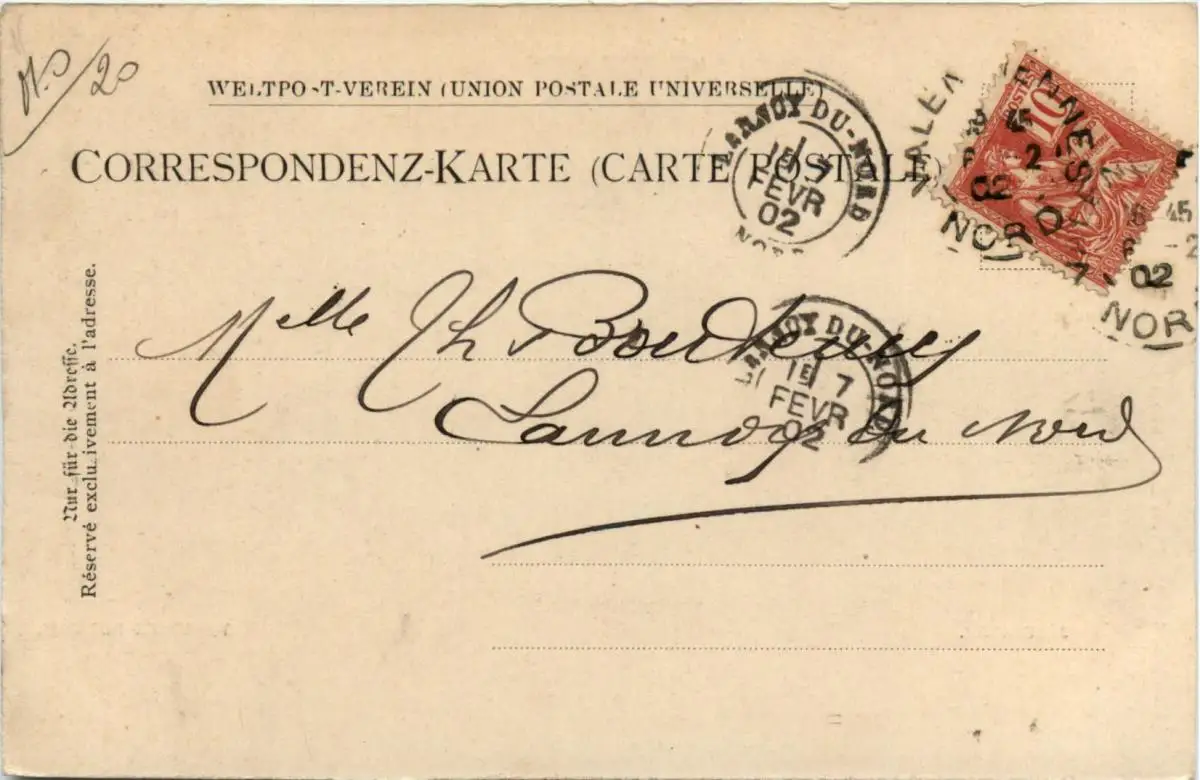 WELTPOST-VEREIN (UNION POSTALE UNIVERSELLE)
CORRESPONDENZ-KARTE (CARTE POSTALE)
LANNOY DU-NORD
1E
7
FEVR
02
NORD
POSTES
10
VALENCIENNES
16 45
6 - 2
02
NORD
16 45
6 - 2
02
NOR
Nur für die Adresse.
Réservé exclusivement à l'adresse.
Melle Th
Lannoy du Nord
LANNOY DU-NORD
1E
7
FEVR
02